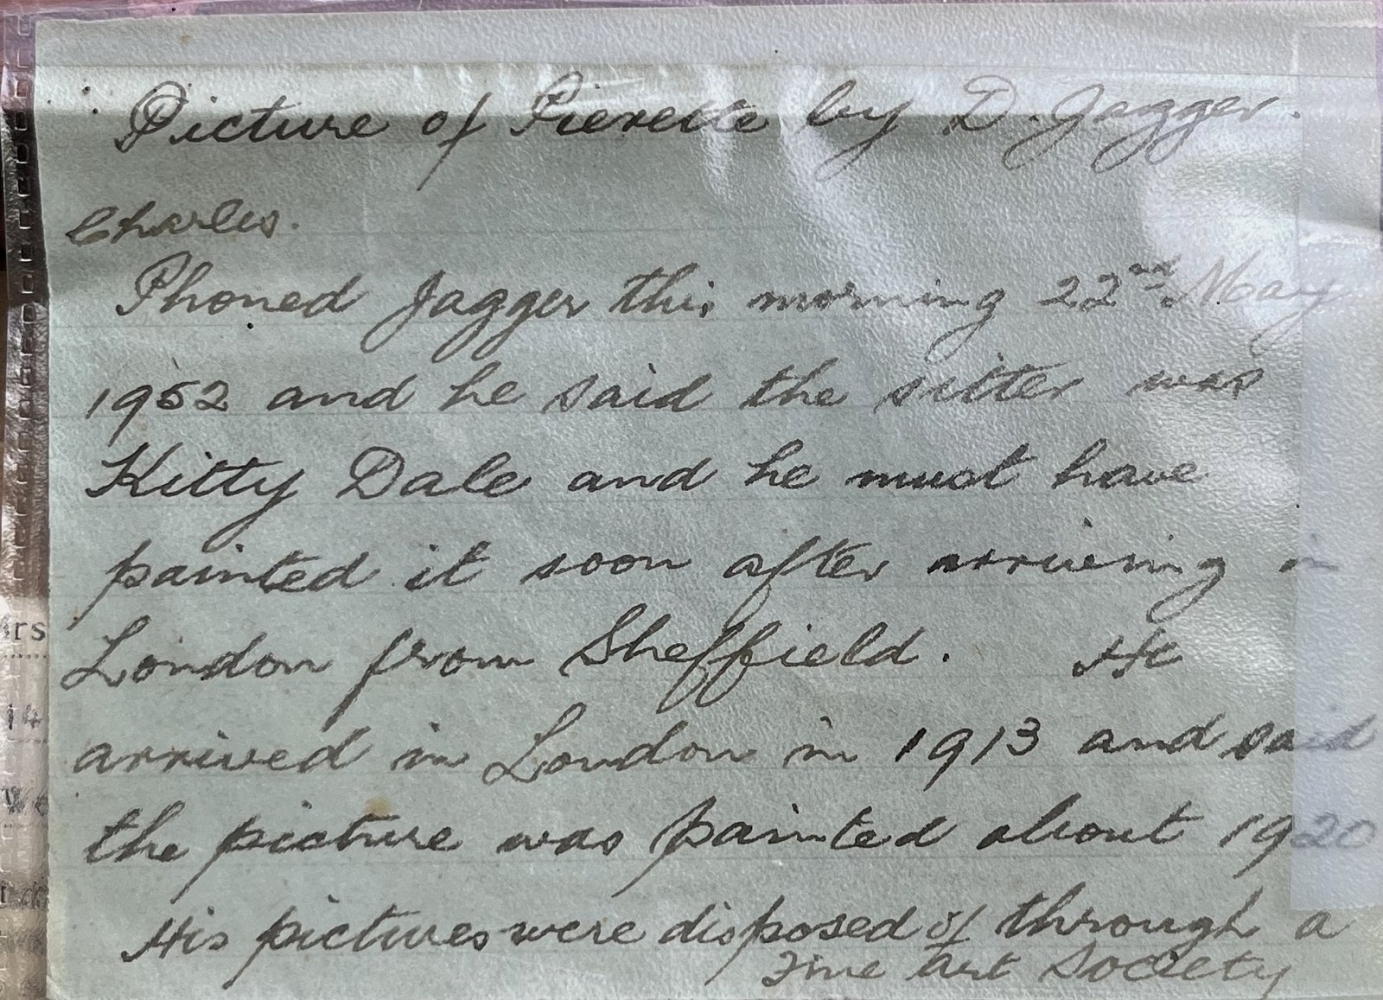 Picture of Pierette by D. Jagger.
Charles.
Phoned Jagger this morning 22nd May
1952 and he said the sitter was
Kitty Dale and he must have
painted it soon after arriving in
London from Sheffield. He
arrived in London in 1913 and said
the picture was painted about 1920
His pictures were disposed of through a
Fine Art Society
rs
14